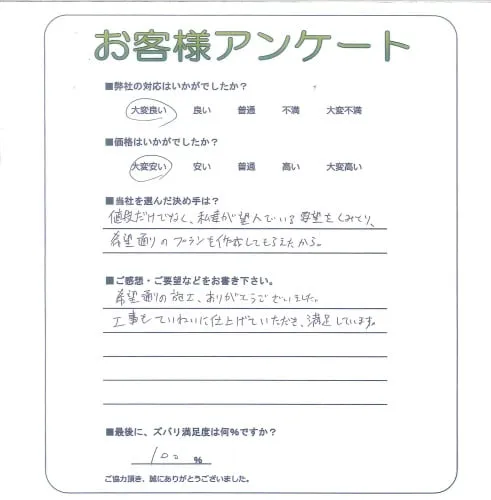 お客様アンケート
■弊社の対応はいかがでしたか？
大変良い 良い 普通 不満 大変不満
■価格はいかがでしたか？
大変安い 安い 普通 高い 大変高い
■当社を選んだ決め手は？
値段だけでなく、私達が望んでいる要望をくみとり、
希望通りのプランを作成してもらえたから。
■ご感想・ご要望などをお書き下さい。
希望通りの施工、ありがとうございました。
工事もていねいに仕上げていただき、満足しています。
■最後に、ズバリ満足度は何％ですか？
100 %
ご協力頂き、誠にありがとうございました。